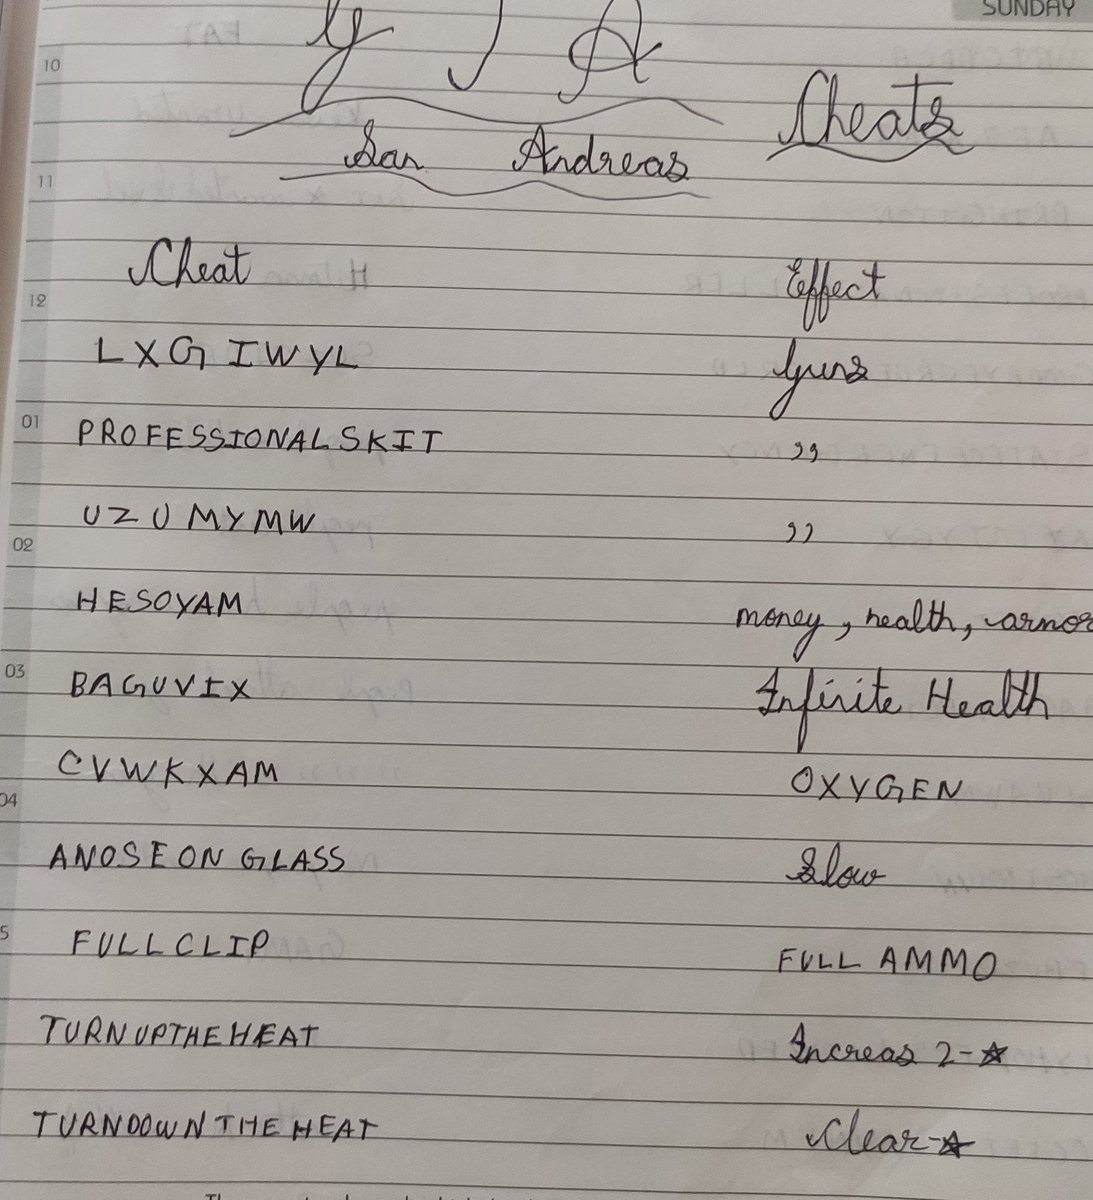 SUNDAY
G T A
San Andreas Cheats
Cheat Effect
LXGIWYL Guns
PROFESSIONALSKIT ,,
UZUMYMW ,,
HESOYAM money, health, armor
BAGUVIX Infinite Health
CVWKXAM OXYGEN
ANOSEONGLASS Slow
FULLCLIP FULL AMMO
TURNUPTHEHEAT Increas 2-☆
TURNDOWNTHEHEAT Clear-☆
10
11
12
01
02
03
04
5